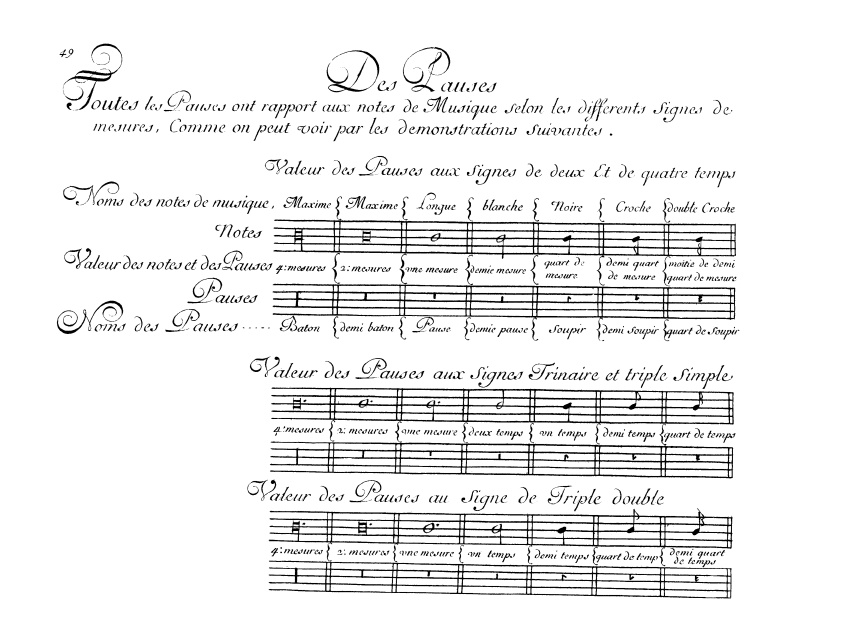 49
Des Pauses
Toutes les Pauses ont rapport aux notes de Musique selon les differents signes de
mesures, Comme on peut voir par les demonstrations suivantes .
Valeur des Pauses aux signes de deux Et de quatre temps
Noms des notes de musique, Maxime Maxime Longue blanche Noire Croche double Croche
Notes
Valeur des notes et des Pauses 4: mesures 2: mesures vne mesure demie mesure quart de mesure demi quart de mesure moitie de demi quart de mesure
Pauses
Noms des Pauses ..... Baton demi baton Pause demie pause soupir demi soupir quart de soupir
Valeur des Pauses aux signes Trinaire et triple simple
4: mesures 2: mesures vne mesure deux temps vn temps demi temps quart de temps
Valeur des Pauses au signe de Triple double
4: mesures 2: mesures vne mesure vn temps demi temps quart de temp demi quart de temps